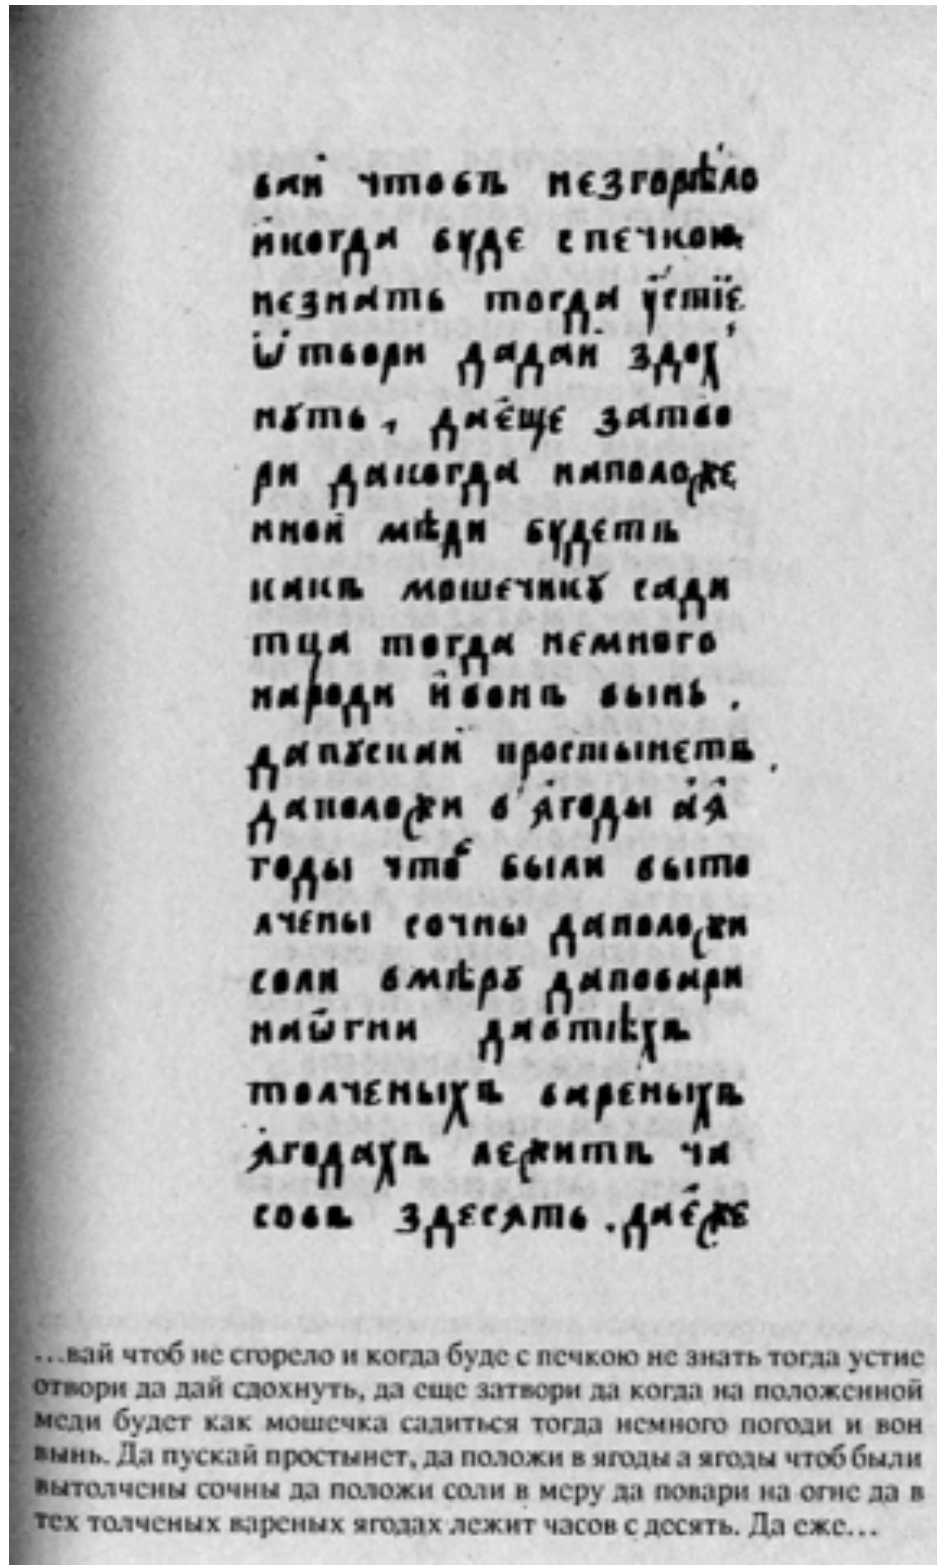 вай чтобъ незгорѣло
и҆когда буде спечкою
незнать тогда ѹстїе
ѿтвори дадай здох
нꙋть, даеще затво
ри дакогда наположе
нной мѣди будетъ
какъ мошечкꙋ сади
тца тогда немного
погоди и҆вонъ вынь.
дапꙋскай простынетъ,
даположи в ꙗгоды аꙗ
годы чтоб были выто
лчены сочны даположи
соли вмѣрꙋ даповари
наѡгни давтѣхъ
толченыхъ вареныхъ
ꙗгодахъ лежитъ ча
совъ здесѧть. даеже
...вай чтоб не сгорело и когда буде с печкою не знать тогда устие
отвори да дай сдохнуть, да еще затвори да когда на положенной
меди будет как мошечка садиться тогда немного погоди и вон
вынь. Да пускай простынет, да положи в ягоды а ягоды чтоб были
вытолчены сочны да положи соли в меру да повари на огне да в
тех толченых вареных ягодах лежит часов с десять. Да еже...